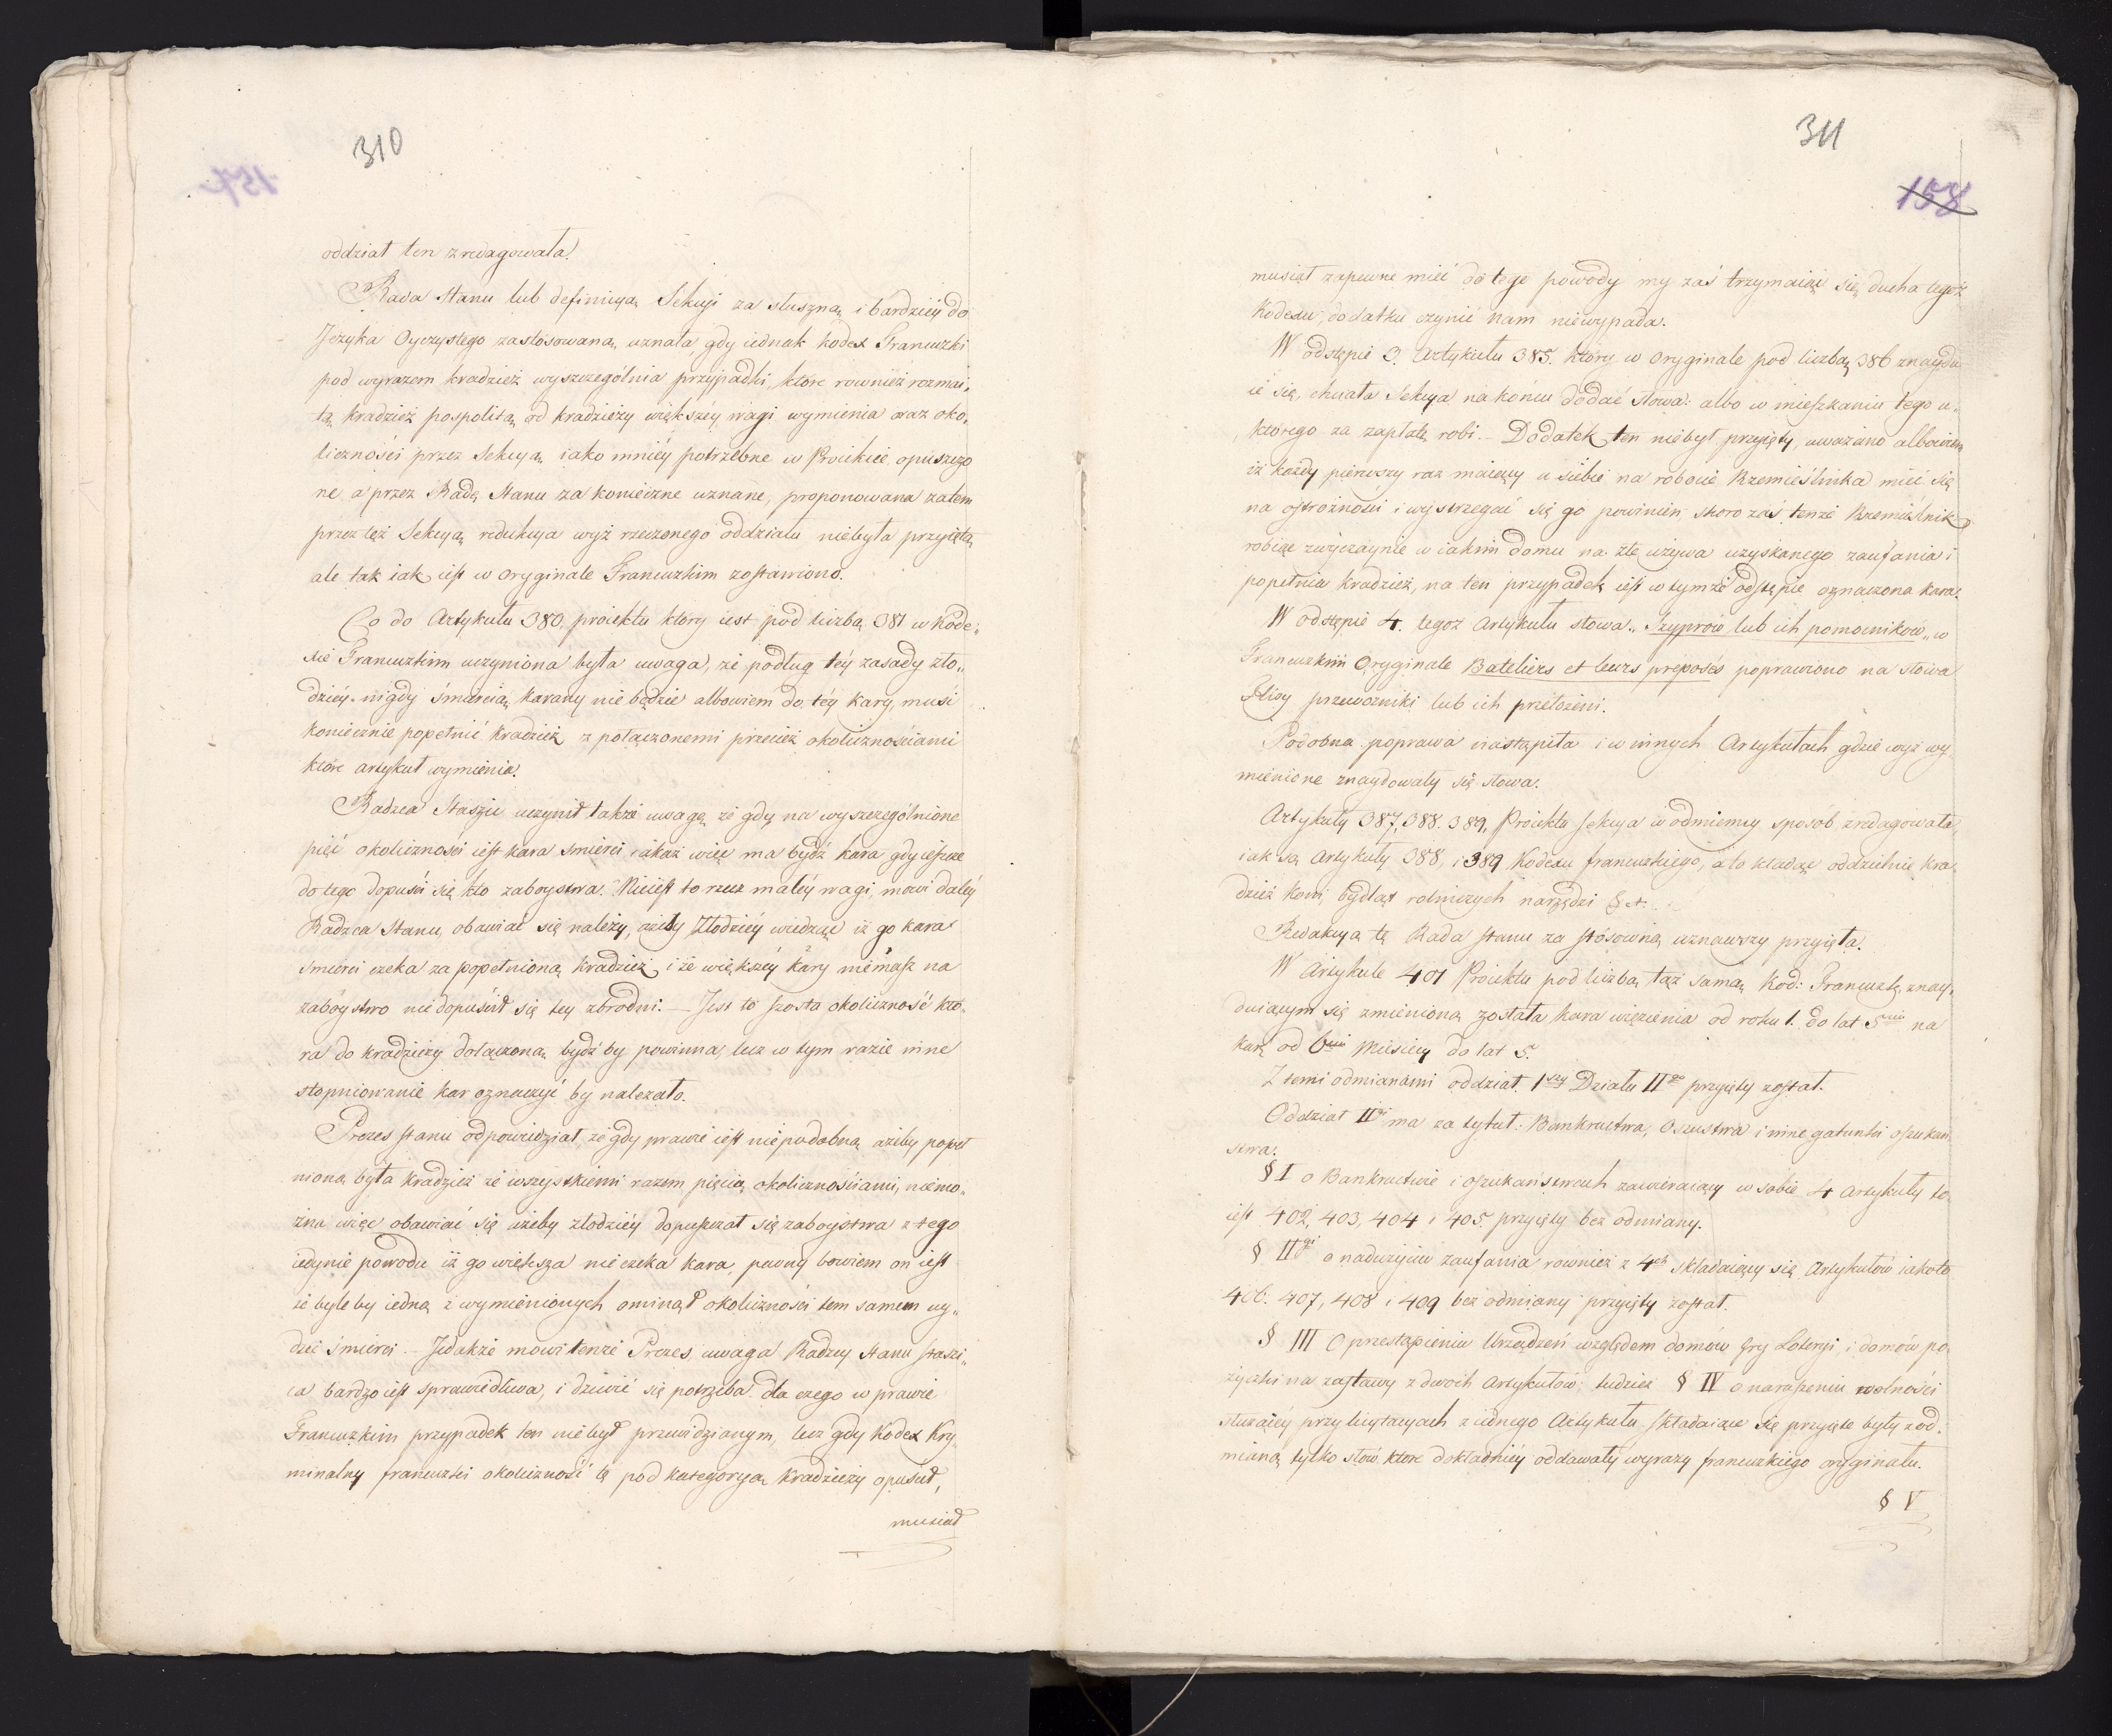 310
oddział ten zredagowała.
Rada Stanu lub definicyą Sekcyi za słuszną i bardziéy do
Języka Oyczystego zastosowaną uznała, gdy iednak Kodex Francuzki
pod wyrazem kradzież wyszczególnia przypadki, które rownież rozmai„
tą kradzież pospolitą od kradzieży większéy wagi wymienia oraz oko„
liczności przez Sekcyą iako mniéy potrzebne w Proiekcie opuszczo
ne a przez Radę Stanu za konieczne uznane, proponowana zatem
przez też Sekcyą redukcya wyż rzeczonego oddziału niebyła przyiętą
ale tak iak iest w oryginale Francuzkim zostawiono.
Co do Artykułu 380. proiektu który iest pod liczbą 381 w Kode„
xie Francuzkim uczyniona była uwaga, że podług téy zasady zło„
dziéy nigdy śmiercią karany nie będzie albowiem do téy kary, musi
koniecznie popełnić kradzież z połączonemi przecież okolicznościami
które artykuł wymienia.
Radzca Staszic uczynił także uwagę że gdy na wyszczególnione
pięć okoliczności iest kara smierci iakaż więc ma bydź kara gdy ieszcze
do tego dopuści się kto zaboystwa. Nieiest to rzecz małéy wagi, mowi daléy
Radzca Stanu, obawiać się należy, ażeby Złodziéy wiedząc iż go kara
smierci czeka za popełnioną kradzież i że większéy kary niemasz na
zabóystwo nie dopuścił się tey zbrodni. — Jest to szosta okoliczność któ„
ra do kradzieży dołączoną bydź by powinna, lecz w tym razie inne
stopniowanie kar oznaczyć by należało.
Prezes stanu odpowiedział, że gdy prawie iest niepodobną ażeby popeł
nioną była kradzież ze wszystkiemi razem pięcią okolicznościami, niemo„
żna więc obawiać się ażeby złodziéy dopuszczał się zaboystwa z tego
iedynie powodu iż go większa nie czeka kara, pewny bowiem on iest
że byle by iedną z wymienionych ominął okoliczności tem samem uy„
dzie śmierci — Jedakże mowi tenże Prezes uwaga Radzcy Stanu Staszi„
ca bardzo iest sprawiedliwa, i dziwić się potrzeba dla czego w prawie
Francuzkim przypadek ten niebył przewidzianym, lecz gdy Kodex Kry„
minalny francuzki okoliczność tę pod kategoryą kradzieży opuścił,
musiał
311
158
musiał zapewne mieć do tego powody my zaś trzymaiąc się ducha tegoż
Kodexu, dodatku czynić nam niewypada.
W odstępie 3. Artykułu 385. który w oryginale pod liczbą 386 znaydu
ie się, chciała Sekcya na końcu dodać słowa: albo w mieszkaniu tego u„
którego za zapłatę robi. — Dodatek ten niebył przyięty, uważano albowiem
iż każdy pierwszy raz maiący u siebie na robocie Rzemieślnika mieć się
na ostrożności i wystrzegać się go powinien skoro zaś tenże Rzemieślnik
robiąc zwyczaynie w iakim domu na złe używa uzyskanego zaufania i
popełnia kradzież, na ten przypadek iest w tymże odstępie oznaczona kara.
W odstępie 4. tegoż Artykułu słowa „Szyprów lub ich pomocników„ w
Francuzkim Oryginale Bateliers et leurs préposés poprawiono na słowa
Flisy przewozniki lub ich przełożeni.
Podobna poprawa nastąpiła i w innych Artykułach gdzie wyż wy„
mienione znaydowały się słowa.
Artykuły 387, 388. 389, Proiektu Sekcya w odmienny sposób zredagowała
iak są Artykuły 388, i 389 Kodexu francuzkiego, a to kładąc oddzielnie kra„
dzież koni, bydląt rolniczych narzędzi &ct.
Redakcyą tę Rada stanu za stosowną uznawszy przyięła.
W Artykule 401 Proiektu pod liczbą też samą Kod: Francuzk: znay„
duiącym się zmienioną została kara więzienia od roku 1. do lat 5ciu na
karę od 6ciu Miesięcy do lat 5.
Z temi odmianami oddział 1szy Działu IIgo przyięty został.
Oddział IIgi ma za tytuł: Bankructwa, Oszustwa i inne gatunki oszukań
stwa.
§ I o Bankructwie i oszukaństwach zawieraiący w sobie 4 Artykuły to„
iest 402, 403, 404 i 405. przyięty bez odmiany.
§ IIgi o nadużyciu zaufania rownież z 4ch składaiący się Artykułów iakoto
406. 407, 408 i 409 bez odmiany przyięty został.
§ III O przestąpieniu Urządzeń względem domów gry Loteryi, i domów po„
życzki na zastawy z dwoch Artykułów, tudzież § IV o naruszeniu wolności
służącéy przy licytacyach z iednego Artykułu składaiące się przyięte były z od„
mianą tylko słów które dokładniéy oddawały wyrazy francuzkiego oryginału.
§ V